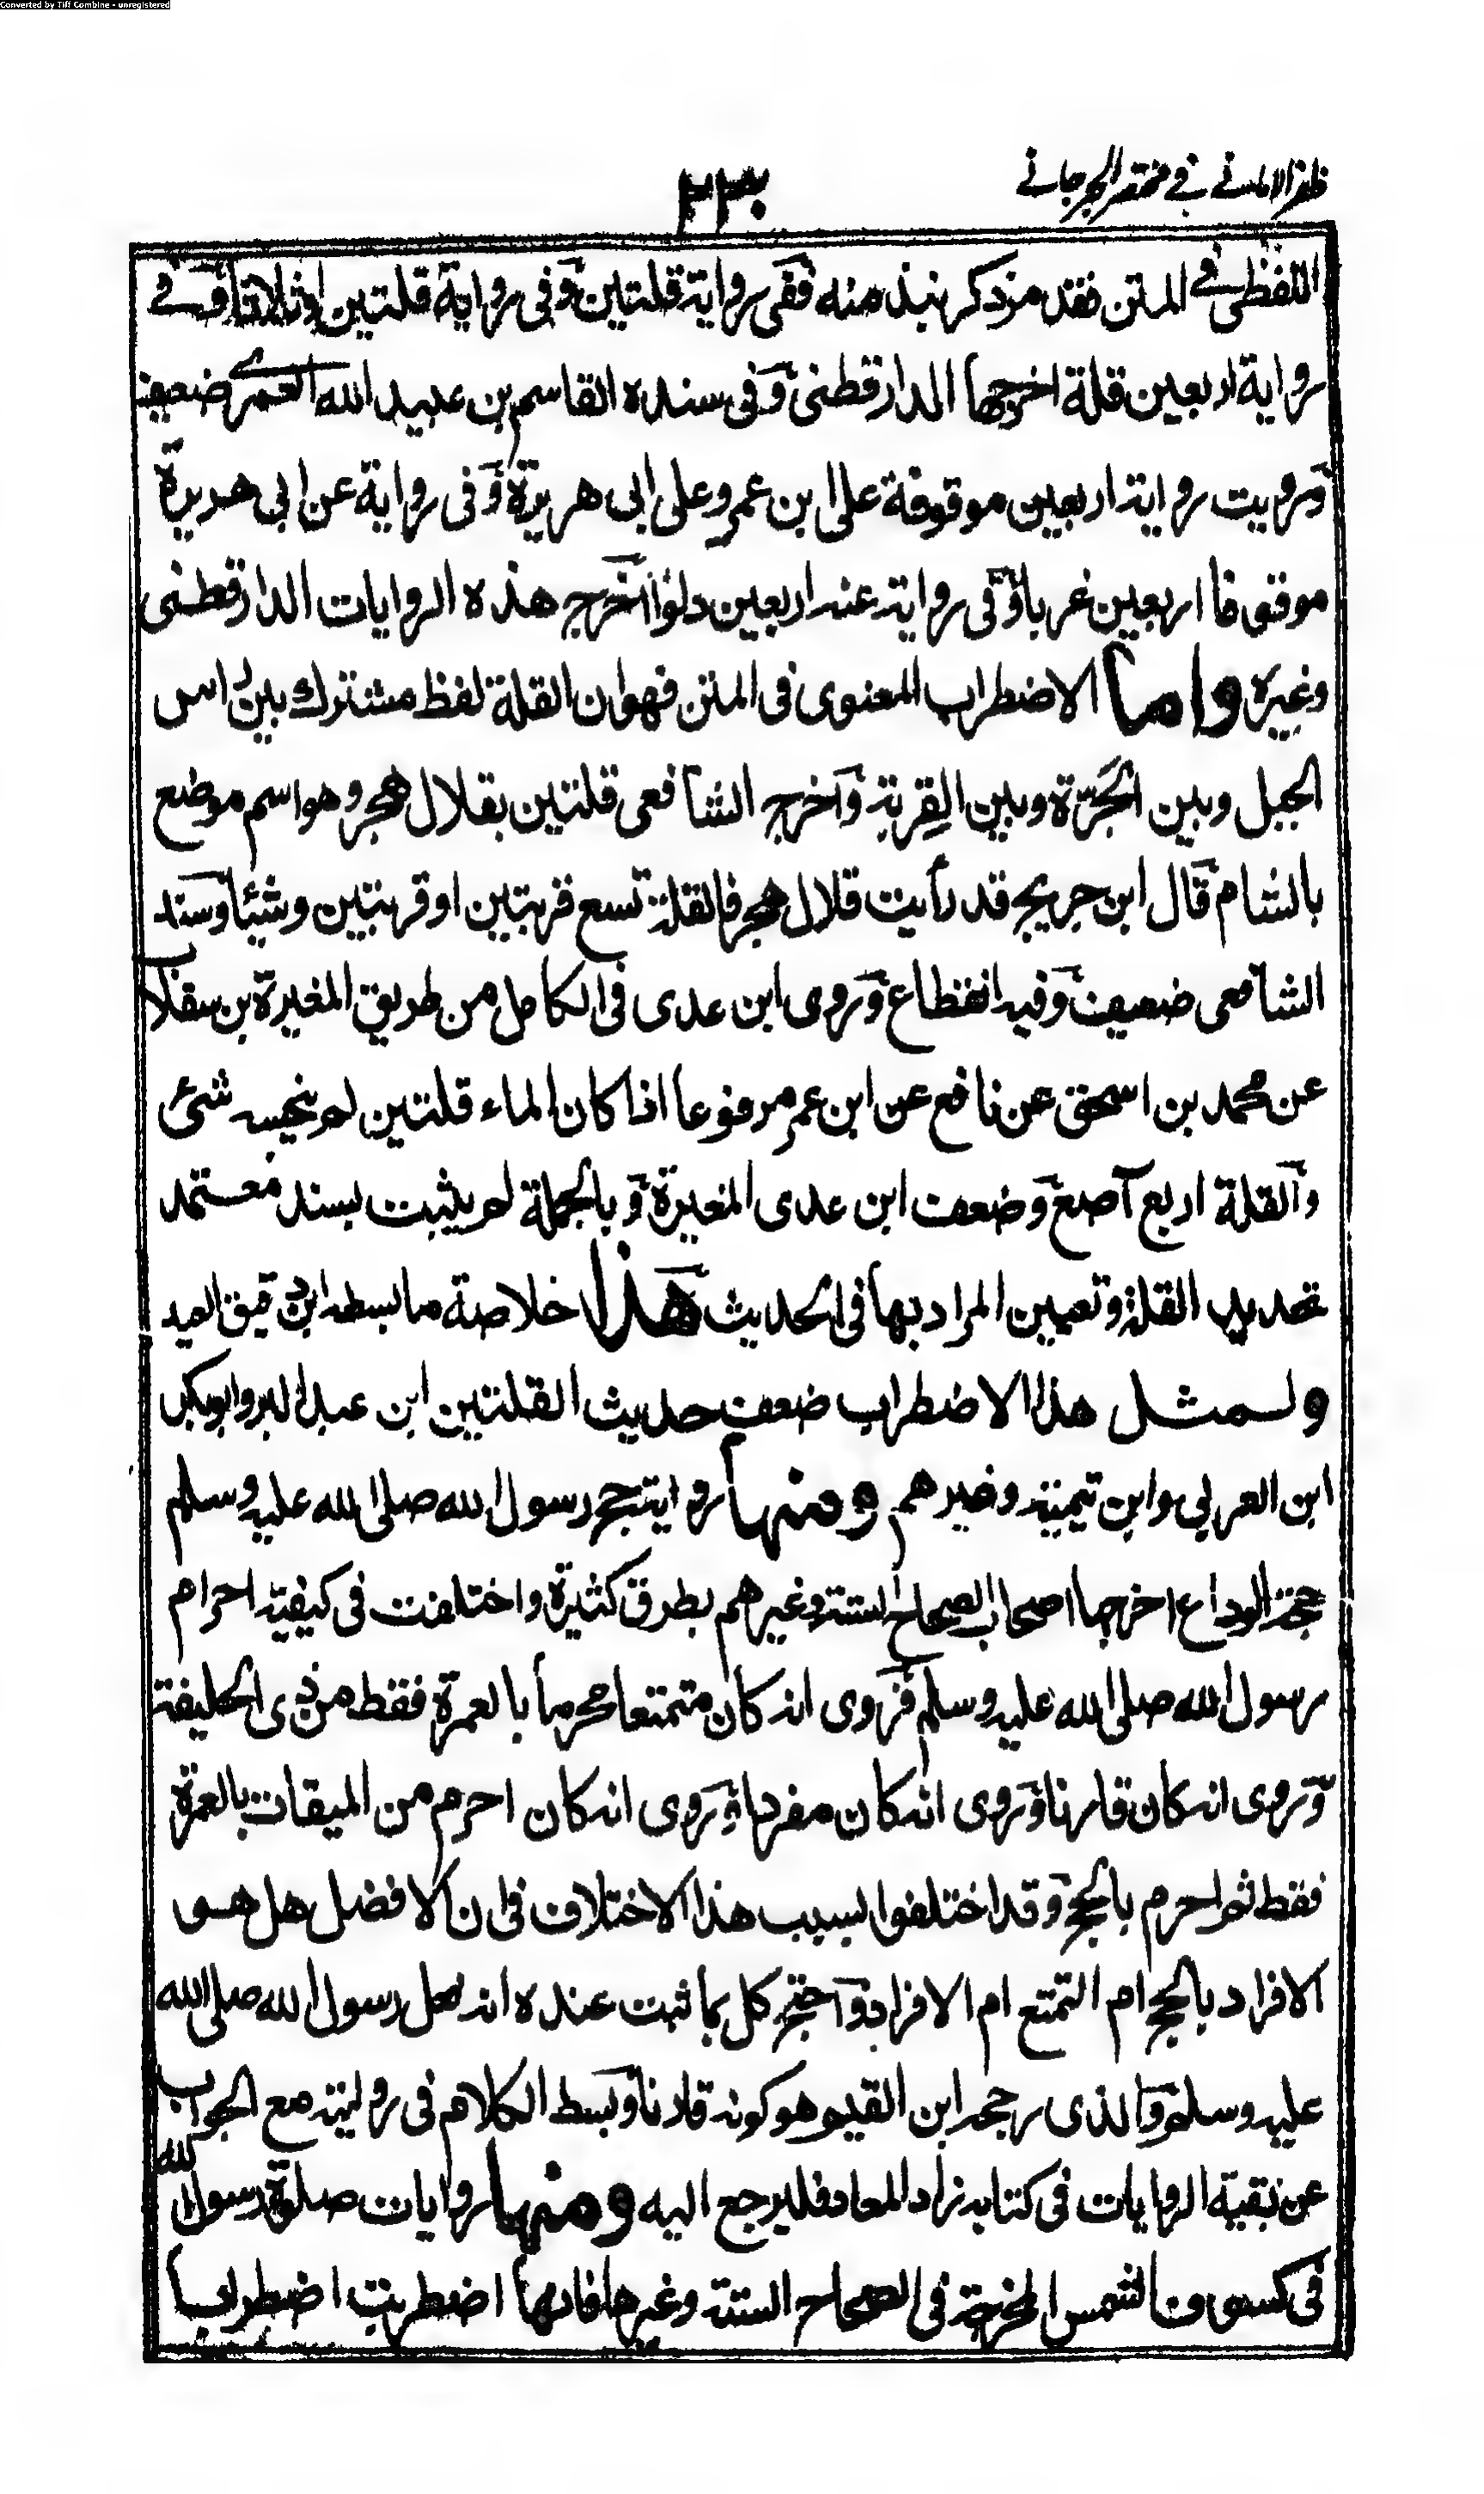 Converted by Tiff Combine - unregistered
ظفر الامانے فے مختصر الجرجانے
٢٣٠
اللفظی فے المتن فقد مر ذكر نبذ منه ففی رواية قلتين وفی رواية قلتين او ثلاثا وفے
رواية اربعين قلة اخرجها الدارقطنی وفی سنده القاسم بن عبيد الله العمرے ضعيف
ورويت رواية اربعين موقوفة علی ابن عمرو وعلی ابی هريرة وفی رواية عن ابی هريرة
موقوفا اربعين غربا وفی رواية عنه اربعين دلوا اخرج هذه الروايات الدارقطنی
وغيره واما الاضطراب المعنوی فی المتن فهو ان القلة لفظ مشترك بين راس
الجبل وبين الجَرّة وبين القِربة واخرج الشافعی قلتين بقلال هجر وهو اسم موضع
بالشام قال ابن جريج قد رأيت قلال هجر فالقلة تسع قربتين او قربتين وشيئا وسند
الشافعی ضعيف وفيه انقطاع وروی ابن عدی فی الكامل من طريق المغيرة بن سقلاب
عن محمد بن اسحق عن نافع عن ابن عمر مرفوعا اذا كان الماء قلتين لم ينجسه شئ
والقلة اربع آصع وضعف ابن عدی المغيرة وبالجملة لم يثبت بسند معتمد
تحديد القلة وتعيين المراد بها فی الحديث هذا خلاصة ما بسطه ابن دقيق العيد
ولمثل هذا الاضطراب ضعف حديث القلتين ابن عبد البر وابو بكر
ابن العربی وابن تيمية وغيرهم ومنها رواية حج رسول الله صلی الله عليه وسلم
حجة الوداع اخرجها اصحاب الصحاح الستة وغيرهم بطرق كثيرة واختلفت فی كيفية احرام
رسول الله صلی الله عليه وسلم فروی انه كان متمتعا محرما بالعمرة فقط من ذی الحليفة
وروی انه كان قارنا وروی انه كان مفردا وروی انه كان احرم من الميقات بالعمرة
فقط ثم احرم بالحج وقد اختلفوا بسبب هذا الاختلاف فی ان الافضل هل هو
الافراد بالحج ام التمتع ام الافراد واحتج كل بما ثبت عنده انه فعل رسول الله صلی الله
عليه وسلم والذی رجحه ابن القيم هو كونه قارنا وبسط الكلام فی روايته مع الجواب
عن بقية الروايات فی كتابه زاد المعاد فليرجع اليه ومنها روايات صلوة رسول الله
فی كسوف الشمس المخرجة فی الصحاح الستة وغيرها فانها اضطربت اضطرابا